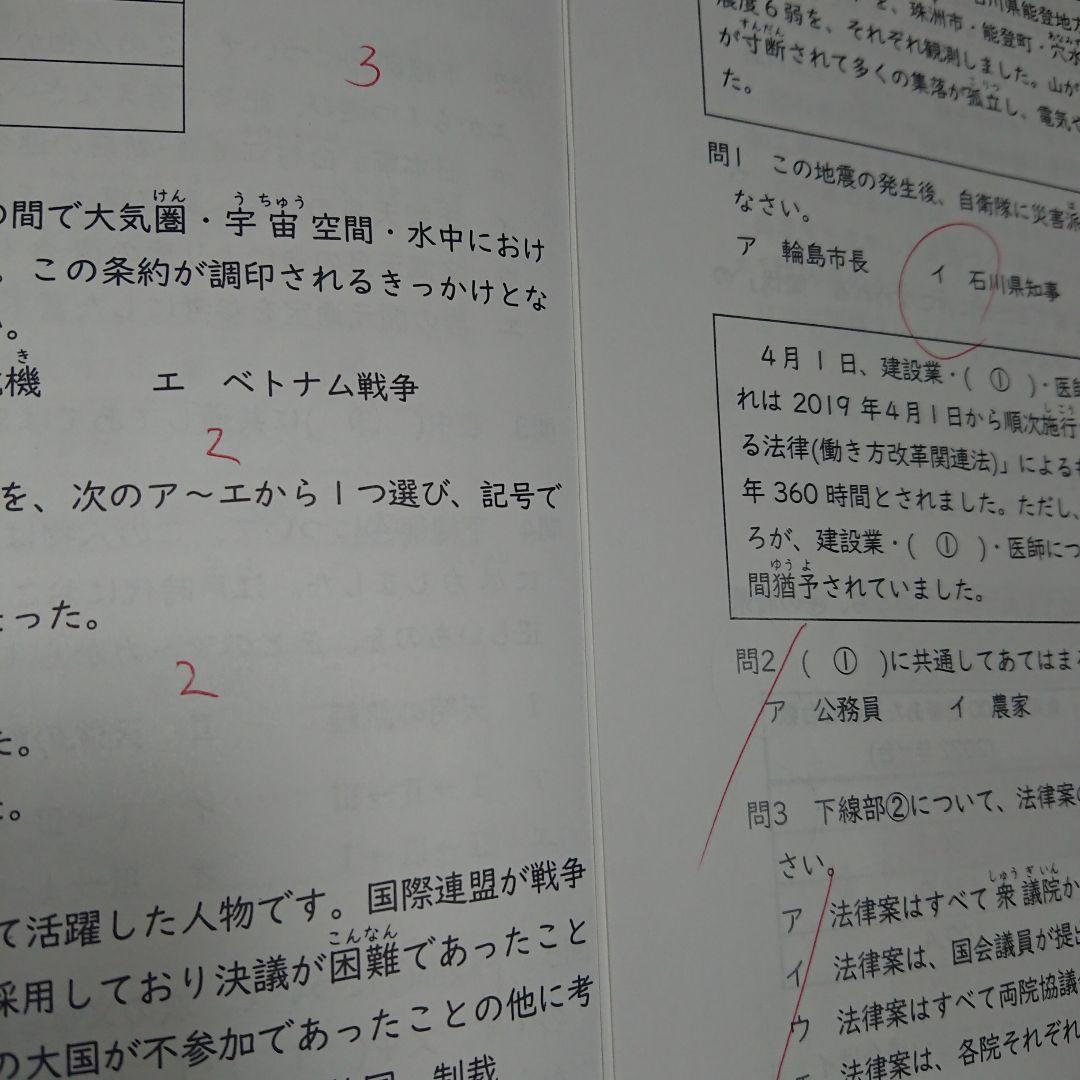 3
の間で大気圏・宇宙空間・水中におけ
けん う ちゅう
。この条約が調印されるきっかけとな
い。
機 エ ベトナム戦争
き
2
を、次のア～エから1つ選び、記号で
った。
2
た。
た。
て活躍した人物です。国際連盟が戦争
採用しており決議が困難であったこと
こんなん
の大国が不参加であったことの他に考
制裁
石川県能登地方
震度6弱を、それぞれ観測しました。山が
を、珠洲市・能登町・穴水
が寸断されて多くの集落が孤立し、電気や
すんだん こりつ
た。
問1 この地震の発生後、自衛隊に災害派
なさい。
ア 輪島市長 イ 石川県知事
4月1日、建設業・( ① )・医師
れは2019年4月1日から順次施行
しこう
る法律(働き方改革関連法)」による
年360時間とされました。ただし、
ろが、建設業・( ① )・医師につ
間猶予されていました。
ゆうよ
問2 ( ① )に共通してあてはま
ア 公務員 イ 農家
問3 下線部②について、法律案の
さい。
ア 法律案はすべて衆議院か
しゅうぎいん
イ 法律案は、国会議員が提出
ウ 法律案はすべて両院協議
エ 法律案は、各院それぞれ